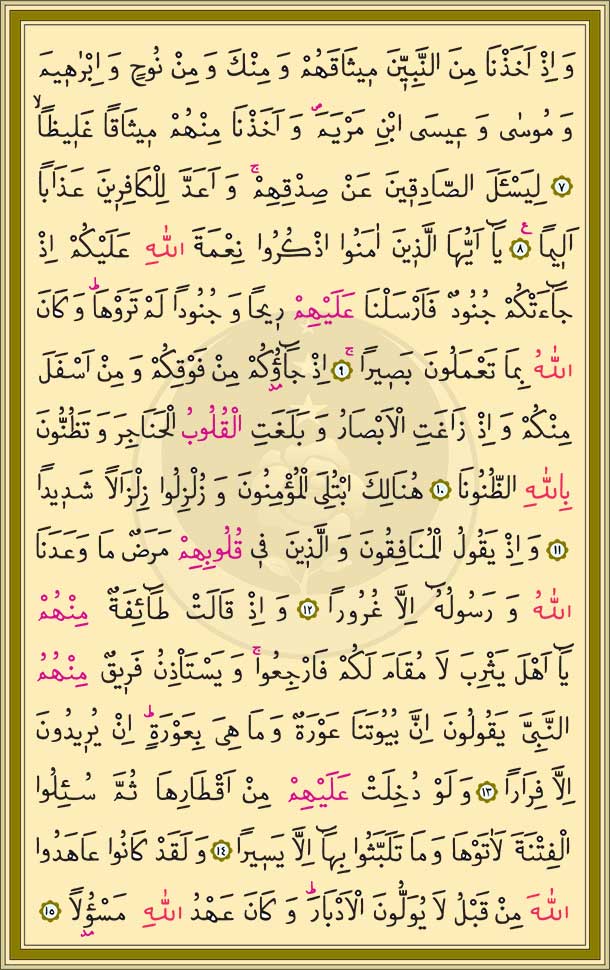 وَ اِذْ اَخَذْنَا مِنَ النَّبِيّٖنَ مٖيثَاقَهُمْ وَ مِنْكَ وَ مِنْ نُوحٍ وَ اِبْرٰهٖيمَ
وَ مُوسٰى وَ عٖيسَى ابْنِ مَرْيَمَۖ وَ اَخَذْنَا مِنْهُمْ مٖيثَاقًا غَلٖيظًاۙ
﴿٧﴾ لِيَسْـَٔلَ الصَّادِقٖينَ عَنْ صِدْقِهِمْۚ وَ اَعَدَّ لِلْكَافِرٖينَ عَذَابًا
اَلٖيمًاࣖ ﴿٨﴾ يَٓا اَيُّهَا الَّذٖينَ اٰمَنُوا اذْكُرُوا نِعْمَةَ اللّٰهِ عَلَيْكُمْ اِذْ
جَٓاءَتْكُمْ جُنُودٌ فَاَرْسَلْنَا عَلَيْهِمْ رٖيحًا وَ جُنُودًا لَمْ تَرَوْهَاؕ وَ كَانَ
اللّٰهُ بِمَا تَعْمَلُونَ بَصٖيرًاۚ ﴿٩﴾ اِذْ جَٓاؤُ۫كُمْ مِنْ فَوْقِكُمْ وَ مِنْ اَسْفَلَ
مِنْكُمْ وَ اِذْ زَاغَتِ الْاَبْصَارُ وَ بَلَغَتِ الْقُلُوبُ الْحَنَاجِرَ وَ تَظُنُّونَ
بِاللّٰهِ الظُّنُونَا ﴿١٠﴾ هُنَالِكَ ابْتُلِىَ الْمُؤْمِنُونَ وَ زُلْزِلُوا زِلْزَالًا شَدٖيدًا
﴿١١﴾ وَ اِذْ يَقُولُ الْمُنَافِقُونَ وَ الَّذٖينَ فٖى قُلُوبِهِمْ مَرَضٌ مَا وَعَدَنَا
اللّٰهُ وَ رَسُولُهُٓ اِلَّا غُرُورًا ﴿١٢﴾ وَ اِذْ قَالَتْ طَٓائِفَةٌ مِنْهُمْ
يَٓا اَهْلَ يَثْرِبَ لَا مُقَامَ لَكُمْ فَارْجِعُواۚ وَ يَسْتَاْذِنُ فَرٖيقٌ مِنْهُمُ
النَّبِىَّ يَقُولُونَ اِنَّ بُيُوتَنَا عَوْرَةٌ وَ مَا هِىَ بِعَوْرَةٍؕ اِنْ يُرٖيدُونَ
اِلَّا فِرَارًا ﴿١٣﴾ وَ لَوْ دُخِلَتْ عَلَيْهِمْ مِنْ اَقْطَارِهَا ثُمَّ سُـئِلُوا
الْفِتْنَةَ لَاٰتَوْهَا وَ مَا تَلَبَّثُوا بِهَٓا اِلَّا يَسٖيرًا ﴿١٤﴾ وَ لَقَدْ كَانُوا عَاهَدُوا
اللّٰهَ مِنْ قَبْلُ لَا يُوَلُّونَ الْاَدْبَارَؕ وَ كَانَ عَهْدُ اللّٰهِ مَسْؤُ۫لًا ﴿١٥﴾